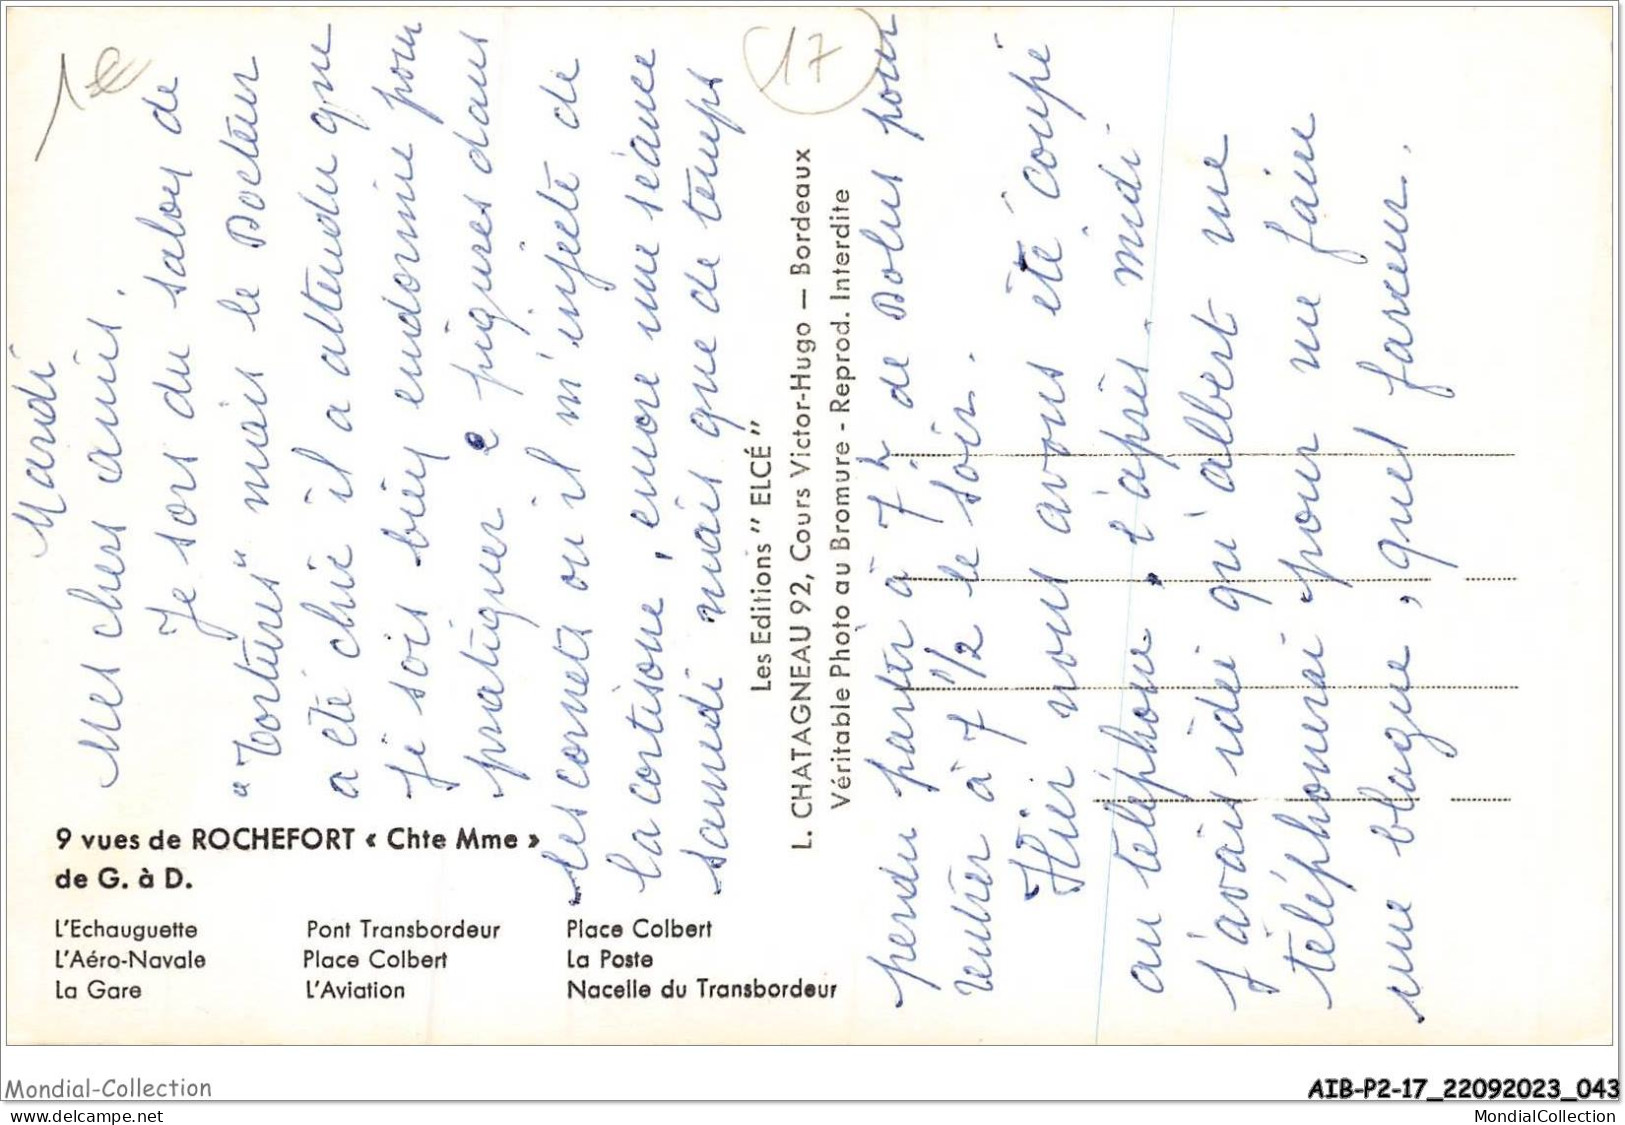 1€
17
Mardi
Mes chers amis.
Je sors du salon de
"Tortures" mais le Docteur
a été chic il a attendu que
je sois bien endormie pour
pratiquer piqures dans
les cornets ou il m'injecte de
la cortisone, encore une séance
samedi mais que de temps
perdu partir à 7h de Dolus pour
rentrer à 7"1/2 le soir.
Hier nous avons été coupé
au téléphone, l'après-midi
j'avais idée qu'albert me
téléphonerai pour me faire
une blague, quel farceur.
9 vues de ROCHEFORT « Chte Mme »
de G. à D.
L'Echauguette Pont Transbordeur Place Colbert
L'Aéro-Navale Place Colbert La Poste
La Gare L'Aviation Nacelle du Transbordeur
Les Editions " ELCÉ "
L. CHATAGNEAU 92, Cours Victor-Hugo — Bordeaux
Véritable Photo au Bromure - Reprod. Interdite
Mondial-Collection
AIB-P2-17_22092023_043
www.delcampe.net
MondialCollection